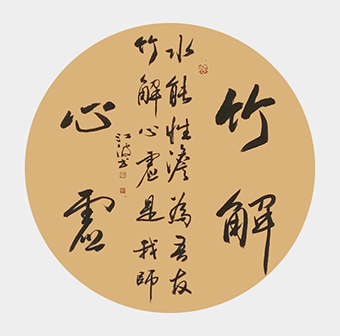 竹解
水能性澹為吾友
竹解心虛是我師
心虛